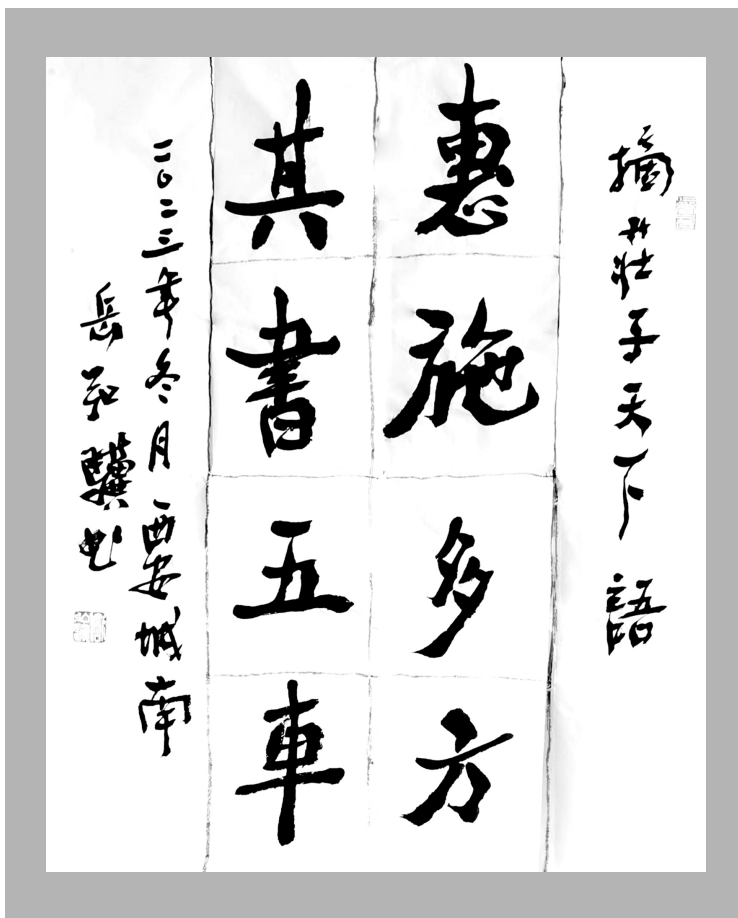 摘莊子天下語
惠施多方
其書五車
二〇二三年冬月西安城南
岳 驥